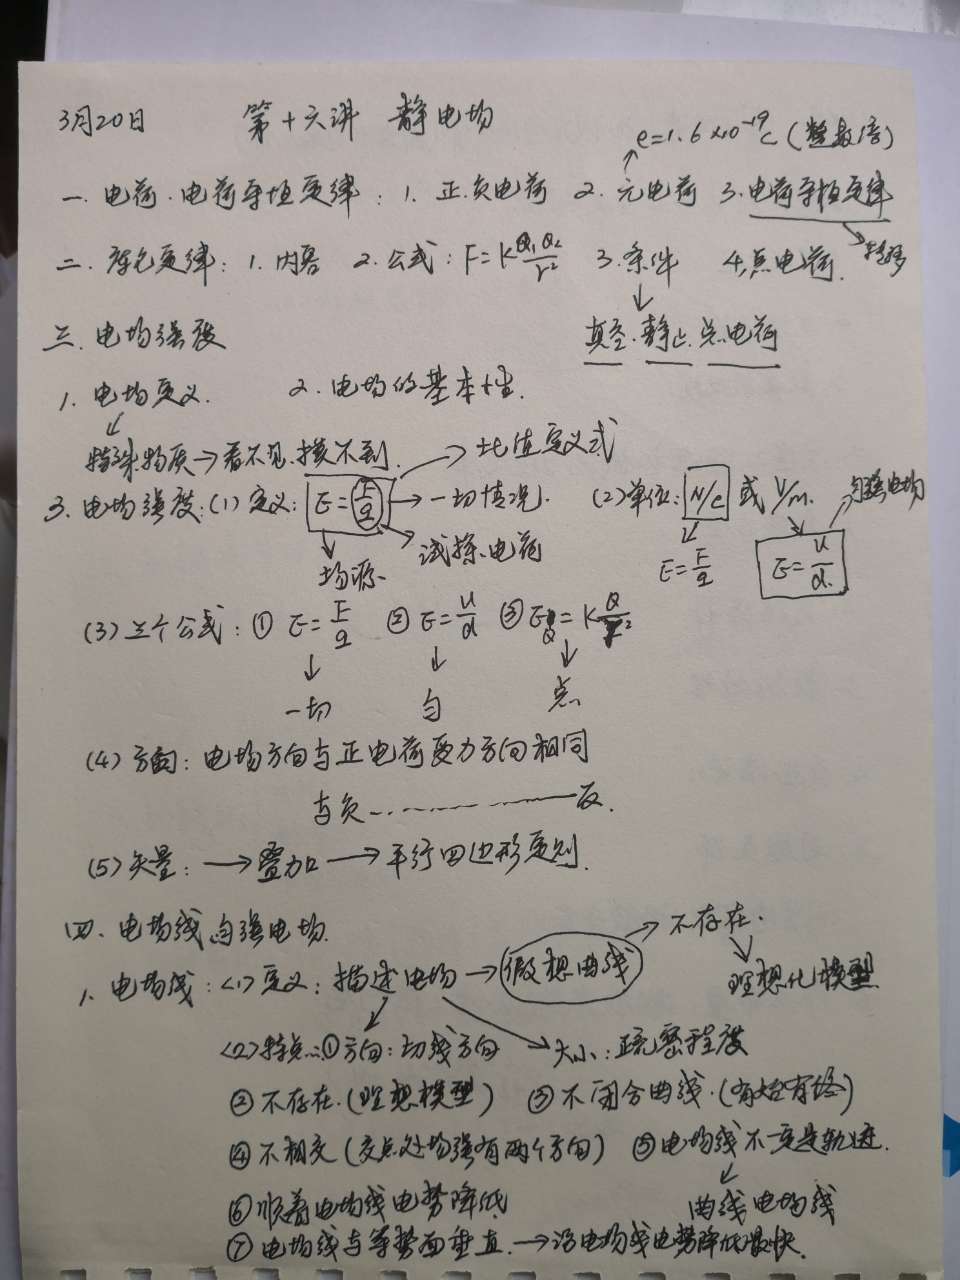 3月20日 第十六讲 静电场
e=1.6×10⁻¹⁹C(整数倍)
一.电荷.电荷守恒定律:1.正.负电荷 2.元电荷 3.电荷守恒定律
二.库仑定律:1.内容 2.公式:F=KQ₁Q₂/r² 3.条件 4.点电荷. 转移
三.电场强度 真空.静止.点电荷
1.电场定义. 2.电场的基本性.
特殊物质→看不见.摸不到. 比值定义式
3.电场强度:(1)定义:E=F/q→一切情况. (2)单位:N/C或V/m. 匀强电场
场源 试探电荷 E=F/q E=U/d
(3)三个公式:①E=F/q ②E=U/d ③E=KQ/r²
一切 匀 点
(4)方向:电场方向与正电荷受力方向相同
与负……——反.
(5)矢量:→叠加→平行四边形定则.
四.电场线 匀强电场. 不存在.
1.电场线:<1>定义:描述电场→假想曲线 理想化模型
<2>特点:①方向:切线方向 大小:疏密程度
②不存在.(理想模型) ③不闭合曲线.(有始有终)
④不相交(交点处场强有两个方向) ⑤电场线不一定是轨迹.
⑥顺着电场线电势降低 曲线电场线
⑦电场线与等势面垂直.→沿电场线电势降低最快.